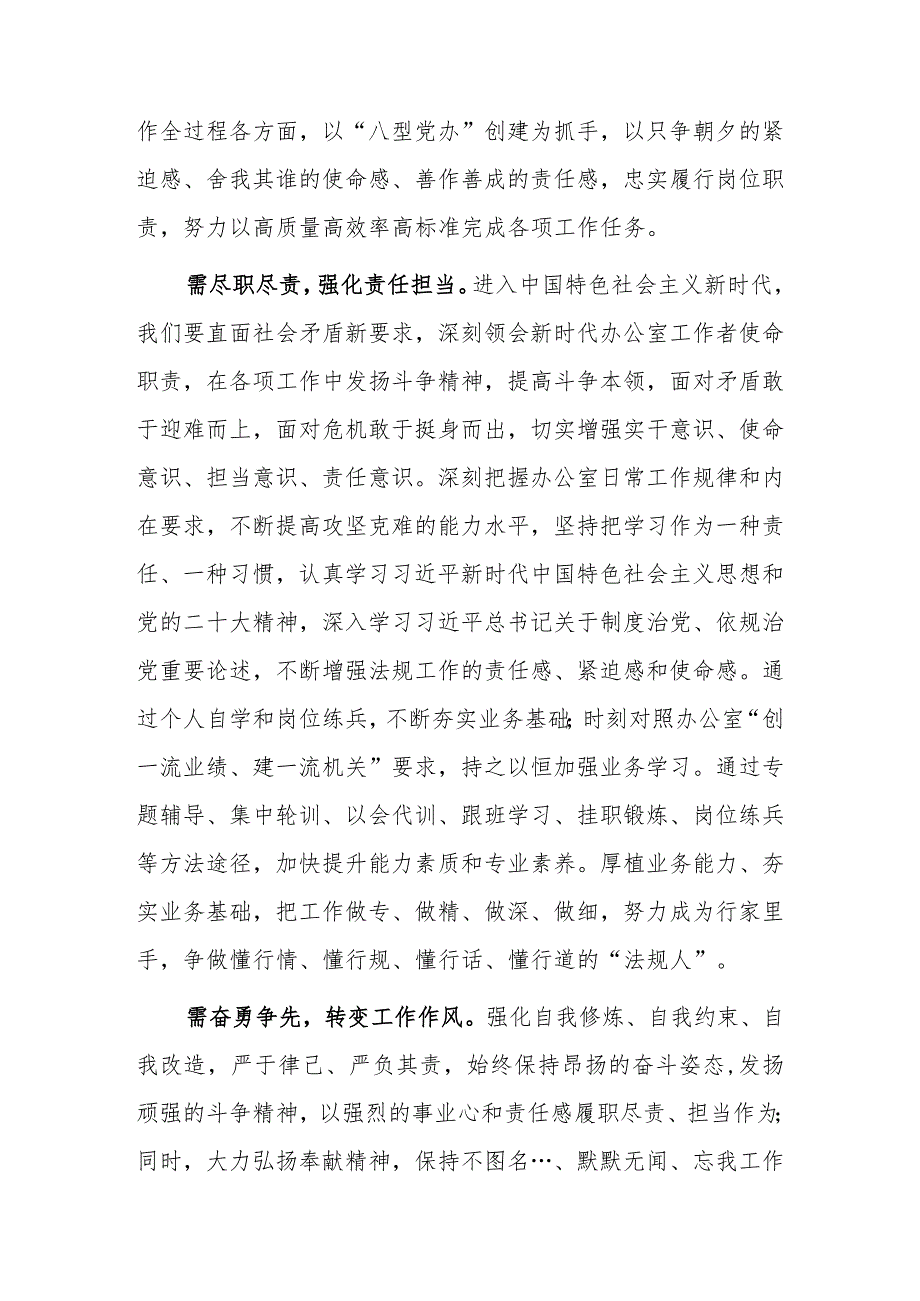 作全过程各方面，以“八型党办”创建为抓手，以只争朝夕的紧
迫感、舍我其谁的使命感、善作善成的责任感，忠实履行岗位职
责，努力以高质量高效率高标准完成各项工作任务。
需尽职尽责，强化责任担当。进入中国特色社会主义新时代，
我们要直面社会矛盾新要求，深刻领会新时代办公室工作者使命
职责，在各项工作中发扬斗争精神，提高斗争本领，面对矛盾敢
于迎难而上，面对危机敢于挺身而出，切实增强实干意识、使命
意识、担当意识、责任意识。深刻把握办公室日常工作规律和内
在要求，不断提高攻坚克难的能力水平，坚持把学习作为一种责
任、一种习惯，认真学习习近平新时代中国特色社会主义思想和
党的二十大精神，深入学习习近平总书记关于制度治党、依规治
党重要论述，不断增强法规工作的责任感、紧迫感和使命感。通
过个人自学和岗位练兵，不断夯实业务基础；时刻对照办公室“创
一流业绩、建一流机关”要求，持之以恒加强业务学习。通过专
题辅导、集中轮训、以会代训、跟班学习、挂职锻炼、岗位练兵
等方法途径，加快提升能力素质和专业素养。厚植业务能力、夯
实业务基础，把工作做专、做精、做深、做细，努力成为行家里
手，争做懂行情、懂行规、懂行话、懂行道的“法规人”。
需奋勇争先，转变工作作风。强化自我修炼、自我约束、自
我改造，严于律己、严负其责，始终保持昂扬的奋斗姿态,发扬
顽强的斗争精神，以强烈的事业心和责任感履职尽责、担当作为；
同时，大力弘扬奉献精神，保持不图名…、默默无闻、忘我工作